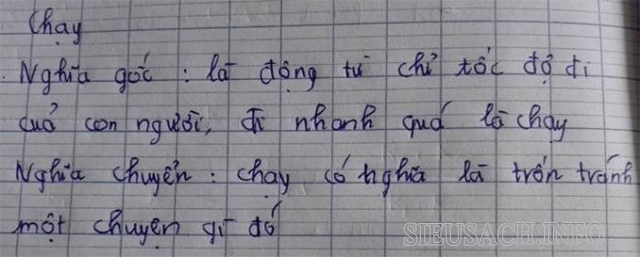 Chạy
Nghĩa gốc : là động từ chỉ tốc độ đi
của con người, đi nhanh quá là chạy
Nghĩa chuyển : chạy có nghĩa là trốn tránh
một chuyện gì đó
SIEUSACH.INFO